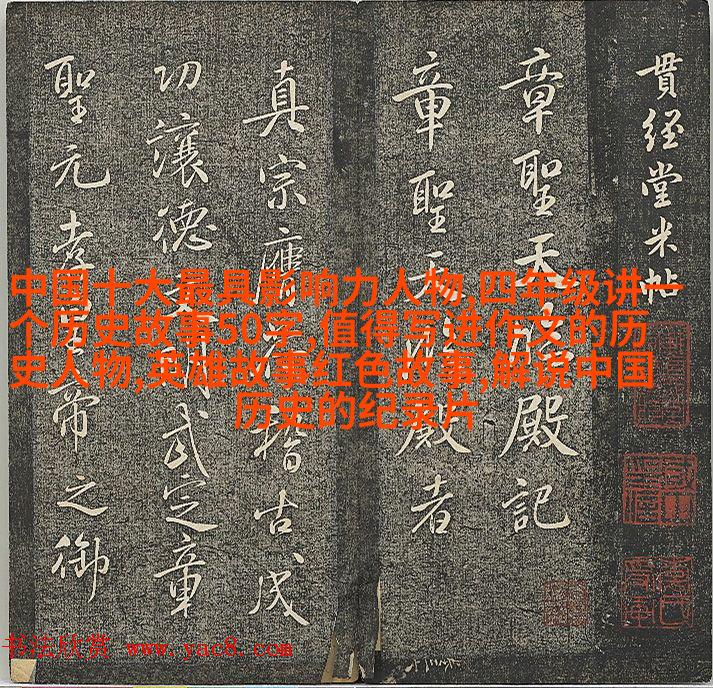 貫經堂米帖
章聖天臨殿記
章聖天臨殿者
真宗膺符稽古成
功讓德文明武定章
聖元孝皇帝之御
中国十大最具影响力人物,四年级讲一
个历史故事50字,值得写进作文的历
史人物,英雄故事红色故事,解说中国
历史的纪录片
书法欣赏 www.yac8.com